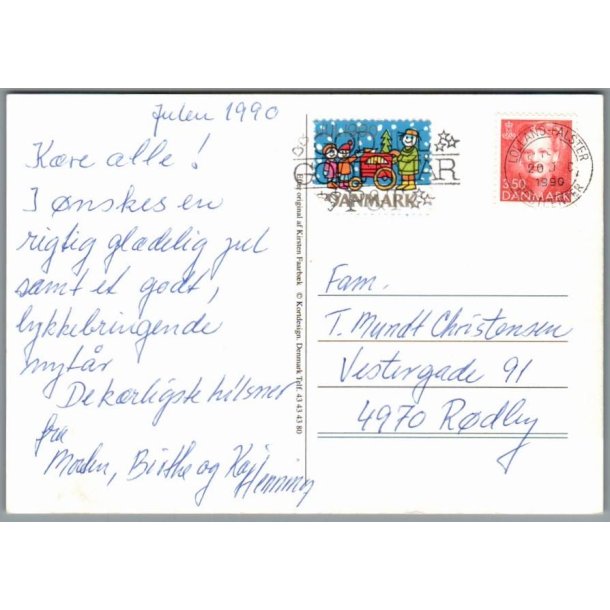 Julen 1990
Kære alle!
I ønskes en
rigtig glædelig jul
samt et godt,
lykkebringende
nytår
De kærligste hilsner
fra
Birthe og Kaj
Henning
efter original af Kirsten Faarbæk © Kortdesign. Denmark Tplf. 43 43 43 80
GODT NYTÅR
DANMARK
LOLLAND-FALSTER
1990
3.50
DANMARK
Fam.
T. Mundt Christensen
Vestergade 91
4970 Rødby